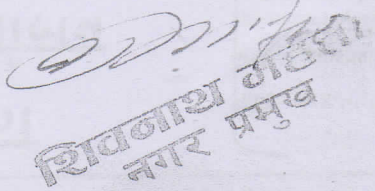 शिवनाथ महतो
नगर प्रमुख